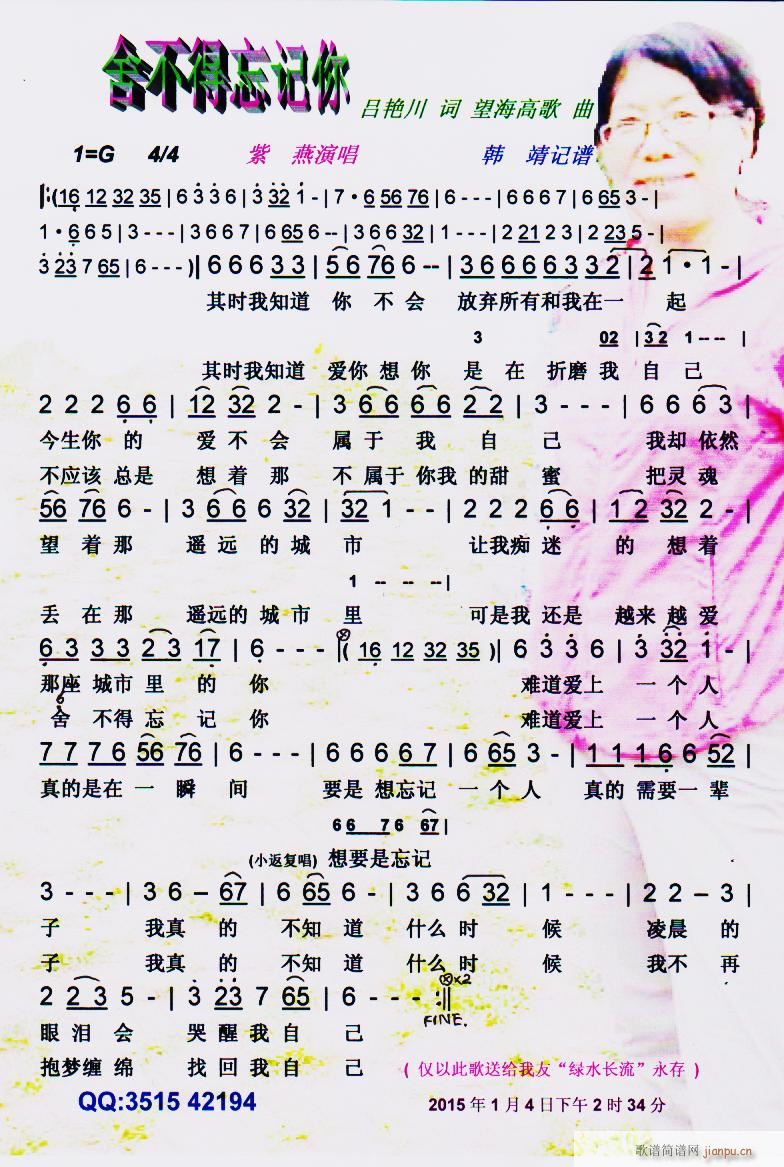 舍不得忘记你
吕艳川 词 望海高歌 曲
1=G 4/4 紫 燕演唱 韩 靖记谱
‖:(16 12 32 35 | 6 3 3 6 | 3 32 1 - | 7 · 6 56 76 | 6 - - - | 6 6 6 7 | 6 65 3 - |
1 · 6 6 5 | 3 - - - | 3 6 6 7 | 6 65 6 -- | 3 6 6 32 | 1 - - - | 2 21 2 3 | 2 23 5 - |
3 23 7 65 | 6 - - - )| 6 6 6 3 3 | 5 6 76 6 -- | 3 6 6 6 6 3 3 2 | 2 1 · 1 - |
其时我知道 你 不 会 放弃所有和我在一 起
3 02 | 3 2 1 -- -- |
其时我知道 爱你 想你 是 在 折磨 我 自 己
2 2 2 6 6 | 12 32 2 - | 3 6 6 6 6 2 2 | 3 - - - | 6 6 6 3 |
今生你 的 爱 不 会 属 于 我 自 己 我 却 依然
不应该 总是 想 着 那 不 属于 你我 的甜 蜜 把灵 魂
56 76 6 - | 3 6 6 6 32 | 32 1 - - | 2 2 2 6 6 | 1 2 32 2 - |
望 着 那 遥 远 的 城 市 让我痴 迷 的 想 着
1 -- -- -- |
丢 在 那 遥 远的 城 市 里 可是我 还是 越来 越 爱
6 3 3 3 2 3 17 | 6 - - - |( 16 12 32 35 )| 6 3 3 6 | 3 32 1 - |
那座 城市 里 的 你 难道爱上 一 个 人
6
舍 不得 忘 记 你 难道爱上 一 个 人
7 7 7 6 56 76 | 6 - - - | 6 6 6 6 7 | 6 65 3 - | 1 1 1 6 6 52 |
真的是在 一 瞬 间 要是 想忘记 一 个 人 真的 需要 一 辈
6 6 7 6 67 |
(小返复唱) 想要是忘记
3 - - - | 3 6 – 67 | 6 65 6 - | 3 6 6 32 | 1 - - - | 2 2 – 3 |
子 我真 的 不知 道 什么 时 候 凌晨 的
子 我真 的 不知 道 什么 时 候 我不 再
2 2 3 5 - | 3 23 7 65 | 6 - - - :‖ x2
FINE.
眼 泪 会 哭 醒 我 自 己
抱梦 缠 绵 找 回 我 自 己 ( 仅以此歌送给我友“绿水长流”永存 )
QQ:3515 42194 2015 年 1 月 4 日下午 2 时 34 分
歌谱简谱网 jianpu.cn